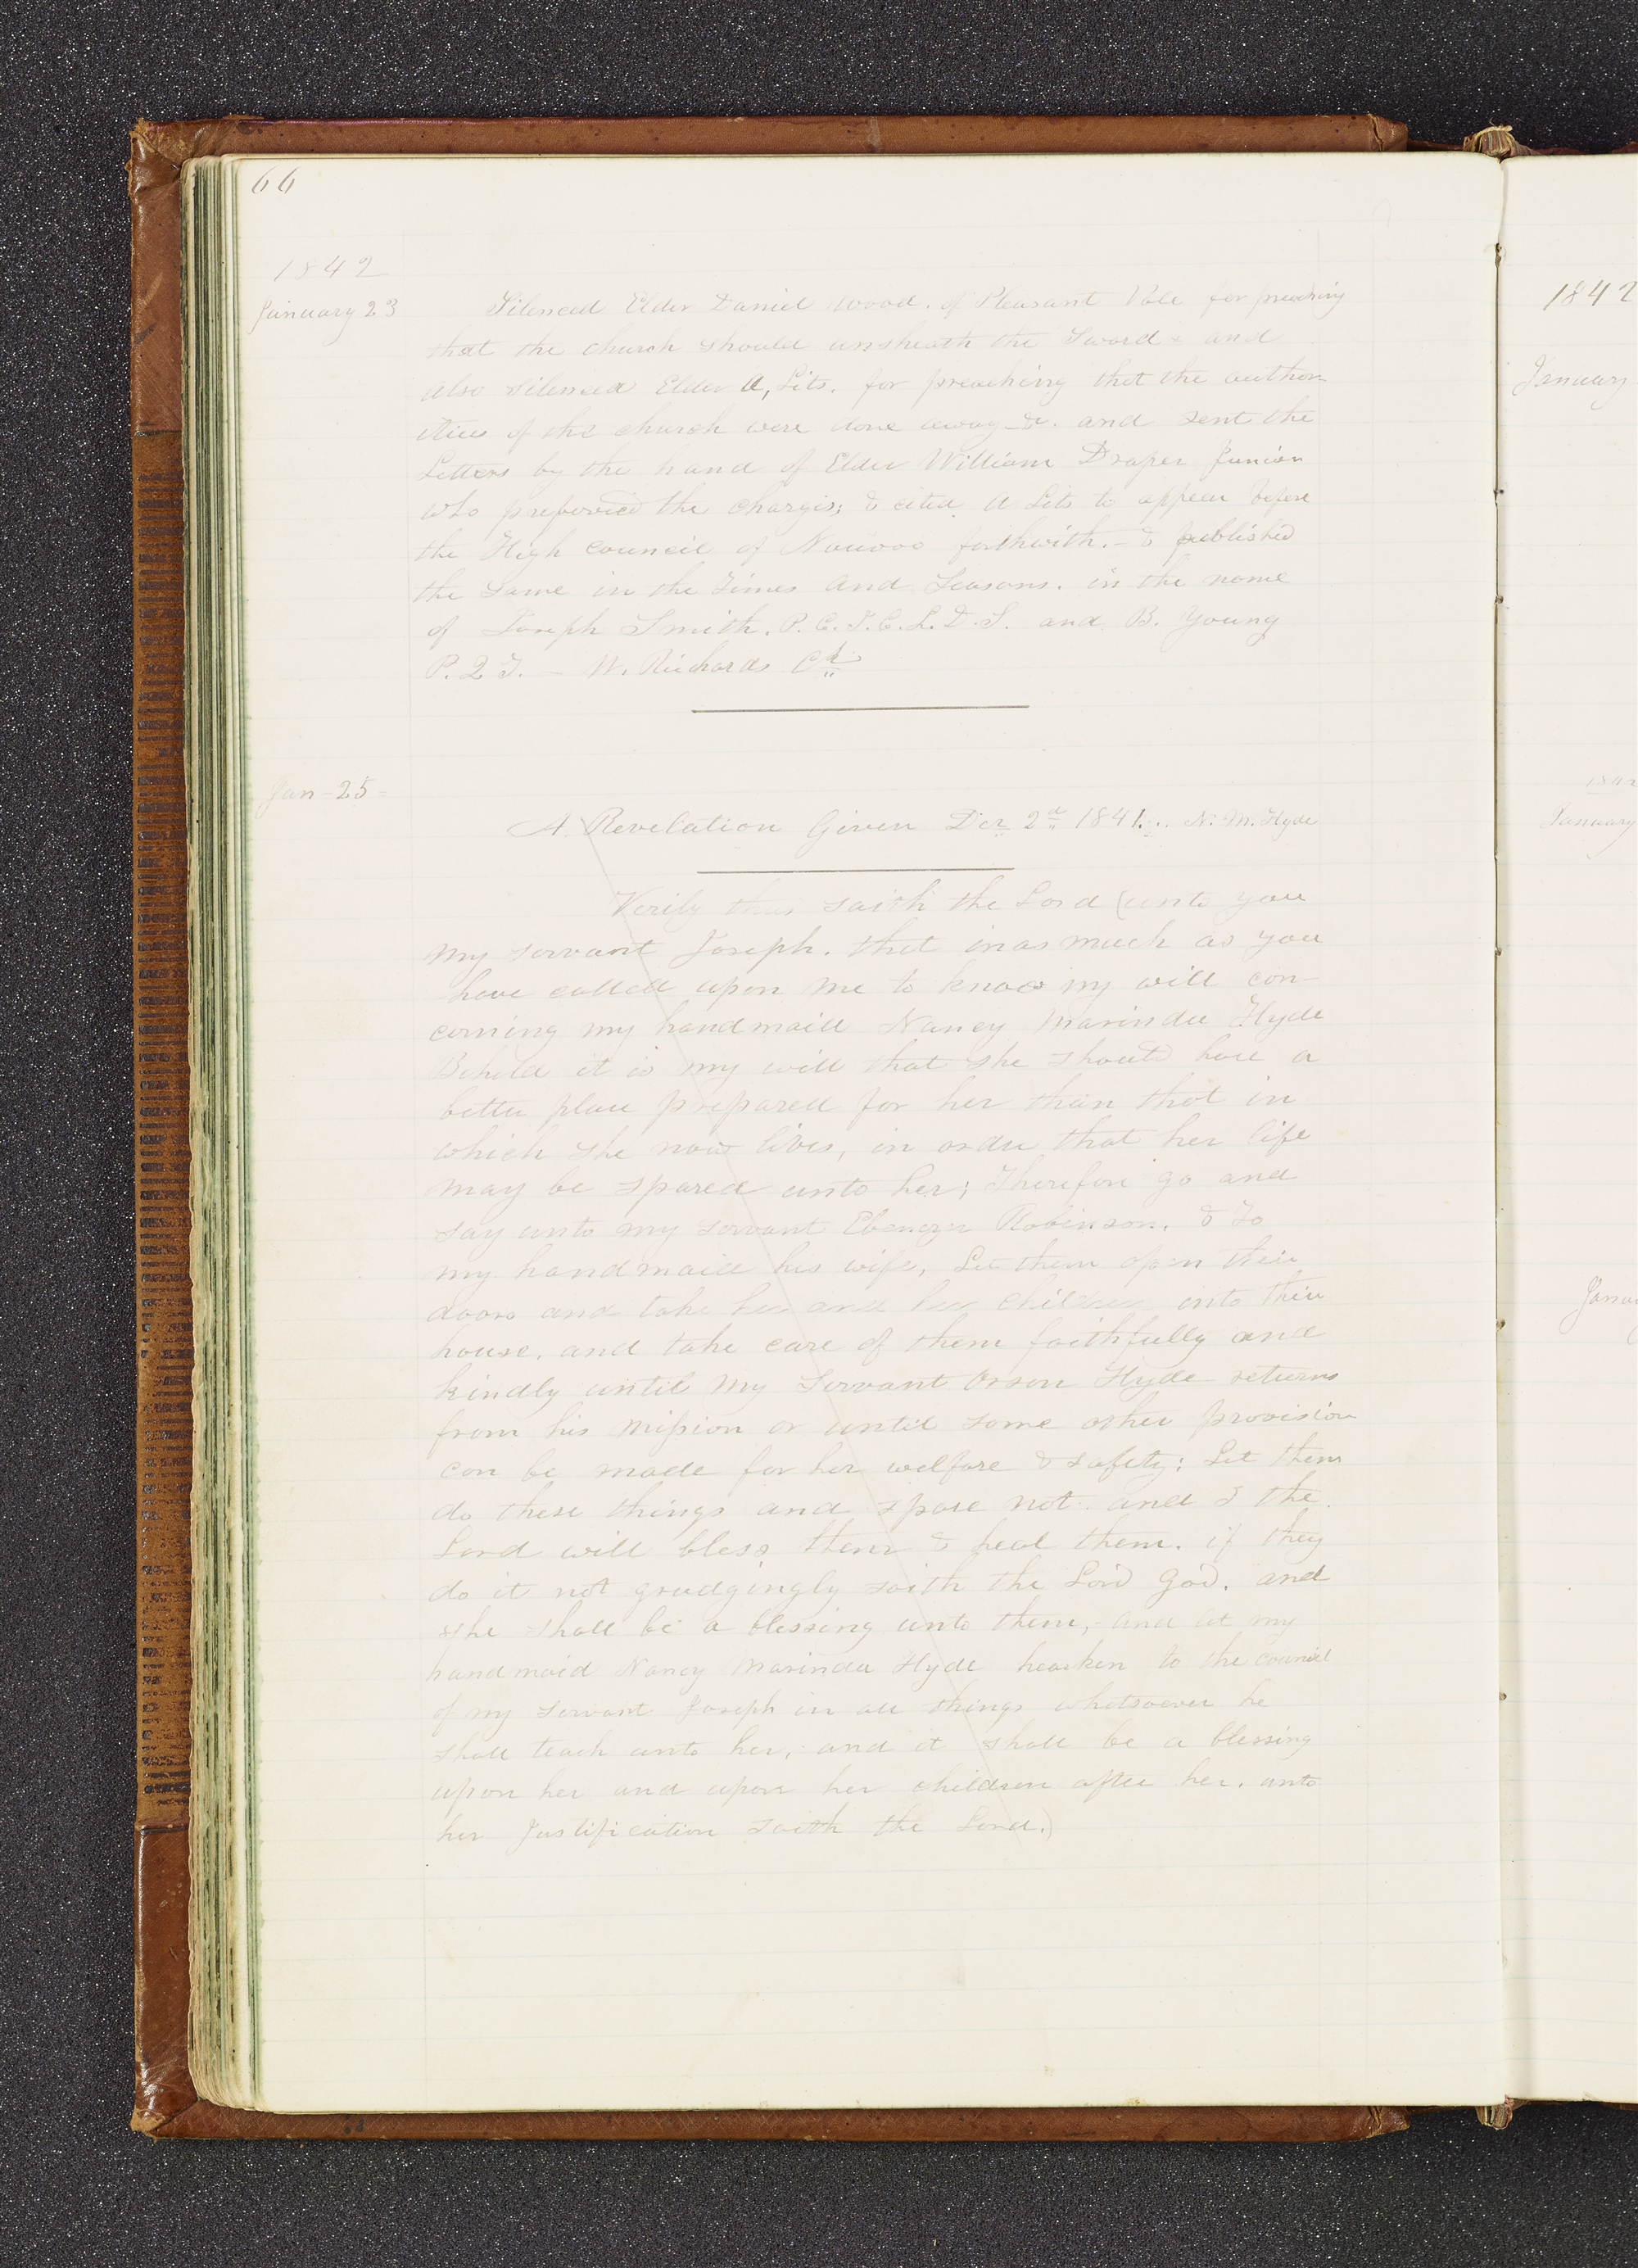 66
1842
January 23
Silenced Elder Daniel Wood. of Pleasant Vale for preaching
that the church should unsheath the Sword - and
also silenced Elder A, Lits. for preaching that the author-
ities of the church were done away - &. and sent the
Letters by the hand of Elder William Draper Junior
who preferred the charges; & cited A Lits to appear before
the High council of Nauvoo forthwith. - & published
the Same in the Times and Seasons. in the name
of Joseph Smith. P. C. J. C. L. D. S. and B. Young
P. 2 T. - W. Richards Ck
Jan - 25 -
A. Revelation Given Dec 2d 1841. N. M. Hyde
Verily thus saith the Lord (unto you
my servant Joseph. that inas much as you
have called upon me to know my will con-
cerning my handmaid Nancy Marinda Hyde
Behold it is my will that she should have a
better place prepared for her than that in
which she now lives, in order that her life
may be spared unto her; Therefore go and
say unto my servant Ebenezer Robinson. & To
my handmaid his wife, Let them open their
doors and take her and her children into their
house. and take care of them faithfully and
kindly until my Servant Orson Hyde returns
from his mission or until some other provision
can be made for her welfare & safety: Let them
do these things and spare not. and I the
Lord will bless them & heal them. if they
do it not grudgingly saith the Lord God. and
she shall be a blessing unto them, - and let my
handmaid Nancy Marinda Hyde hearken to the council
of my servant Joseph in all things whatsoever he
shall teach unto her, and it shall be a blessing
upon her and upon her children after her. unto
her Justification saith the Lord.)
1842
January
1842
January